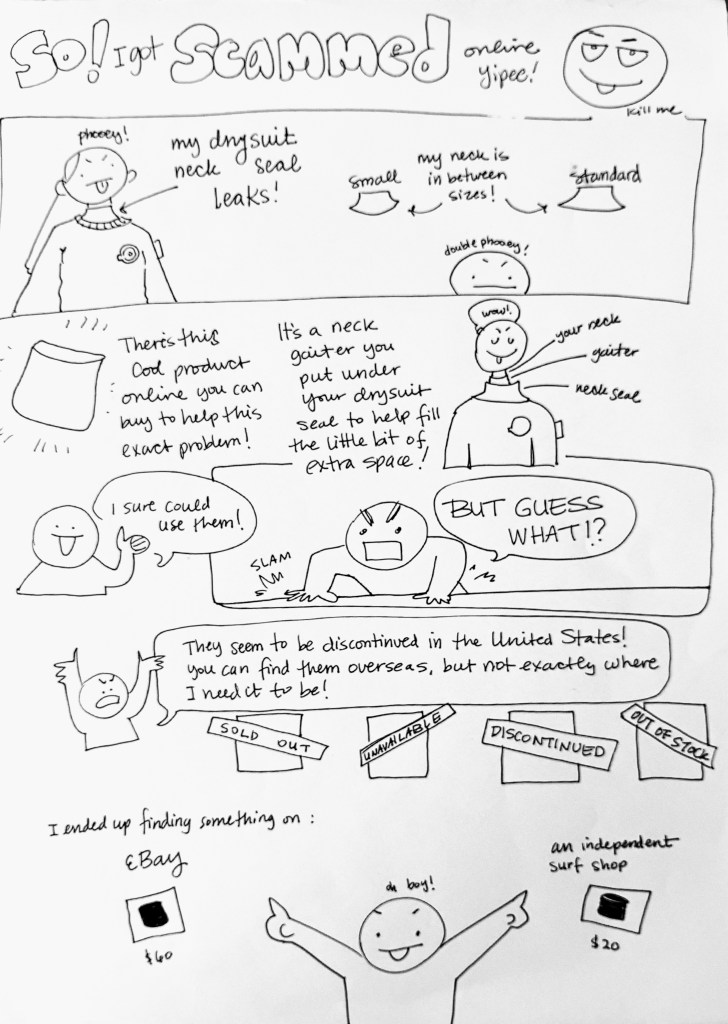 So! I got Scammed online
yipee!
kill me
phooey!
my drysuit
neck seal
leaks!
small
my neck is
in between
sizes!
standard
double phooey!
There's this
Cool product
online you can
buy to help this
exact problem!
It's a neck
gaiter you
put under
your drysuit
seal to help fill
the little bit of
extra space!
wow!
your neck
gaiter
neck seal
I sure could
use them!
SLAM
BUT GUESS
WHAT!?
They seem to be discontinued in the United States!
you can find them overseas, but not exactly where
I need it to be!
SOLD OUT
UNAVAILABLE
DISCONTINUED
OUT OF STOCK
I ended up finding something on :
eBay
$60
oh boy!
an independent
surf shop
$20